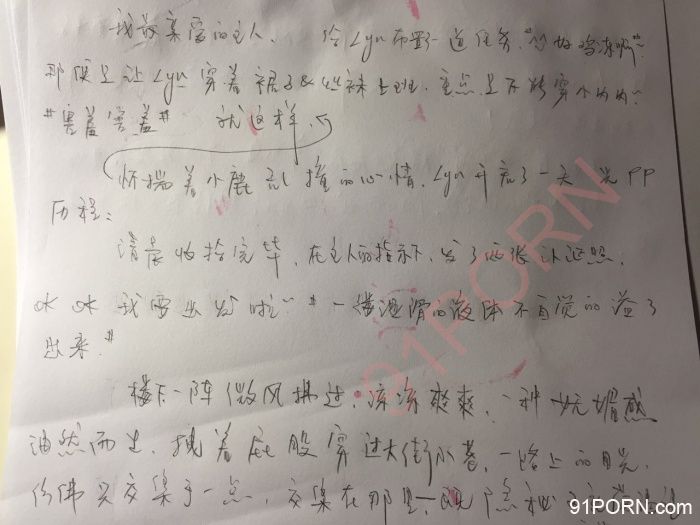 我最亲爱的主人、给Lyn布置了一道任务,"好好鸡冻啊"~
那便是让Lyn穿着裙子&丝袜上班,重点是不能穿小内内~
"害羞害羞" 就这样,
怀揣着小鹿乱撞的心情,Lyn开启了一天光PP
历程:
清晨收拾完毕,在主人的指示下,发了两张认证照,
OK OK 我要出发啦~"一搂湿滑的液体不自觉的溢了
出来"
楼下一阵微风拂过,凉凉爽爽,一种妩媚感
油然而生,撅着屁股穿过大街小巷,一路上的目光,
仿佛只交集于一点,交集在那里
91PORN
91PORN.com